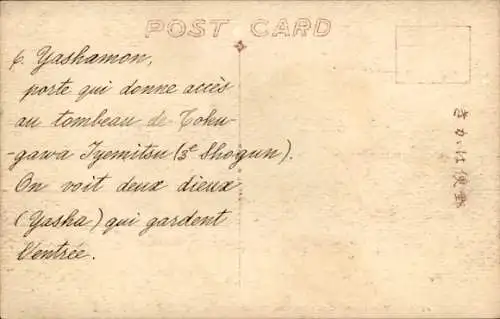 POST CARD
6. Yashamon,
porte qui donne accès
au tombeau de Toku-
-gawa Iyemitsu (3e Shogun).
On voit deux dieux
(Yasha) qui gardent
l'entrée.
きかは便郵